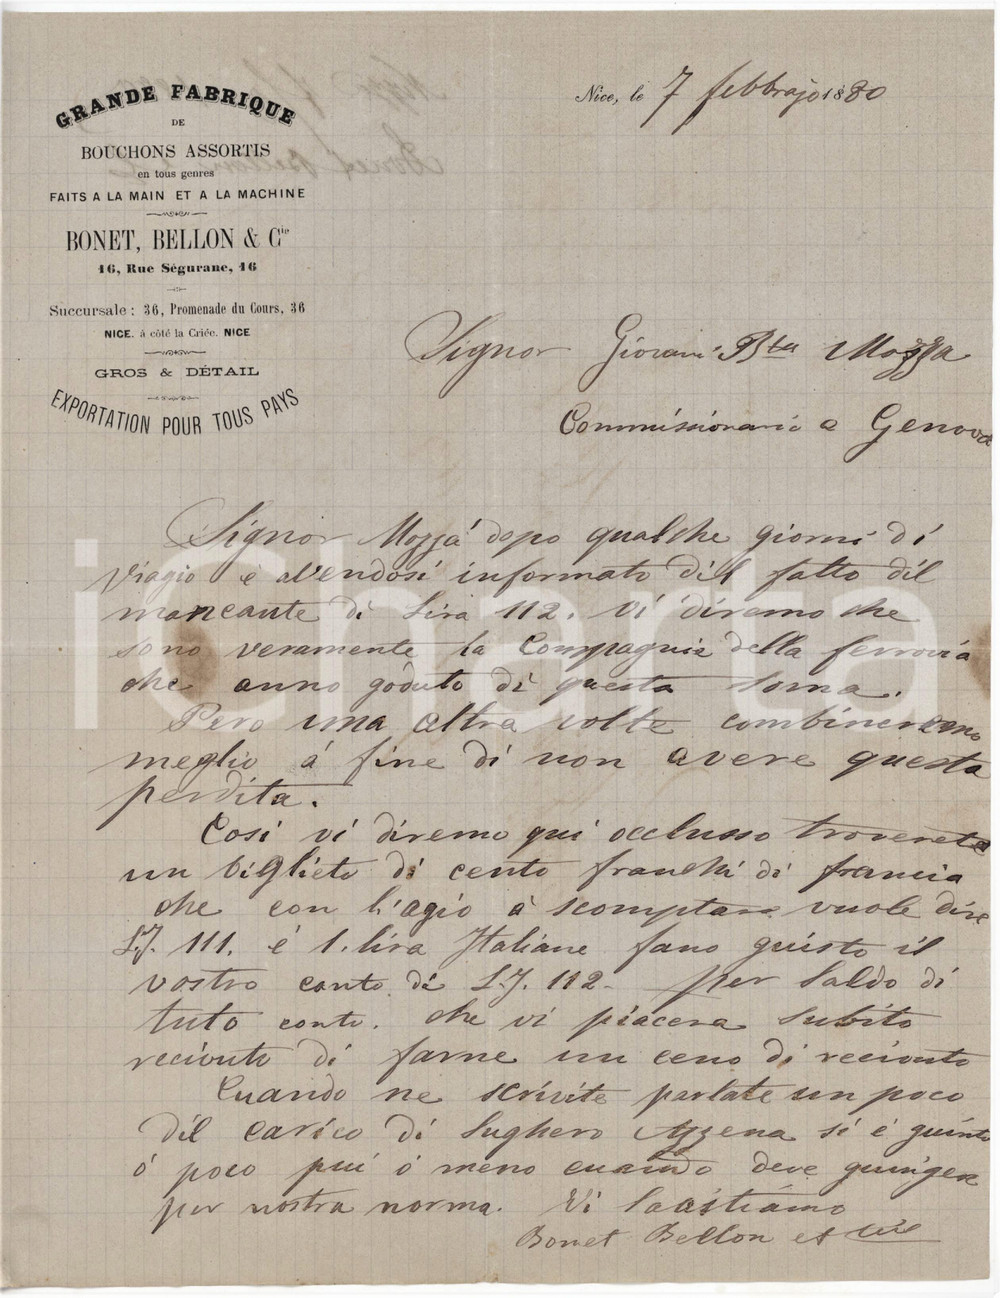 GRANDE FABRIQUE
DE
BOUCHONS ASSORTIS
en tous genres
FAITS A LA MAIN ET A LA MACHINE
BONET, BELLON & Cie
16, Rue Ségurane, 16
Succursale : 36, Promenade du Cours, 36
NICE. à côté la Criée. NICE
GROS & DÉTAIL
EXPORTATION POUR TOUS PAYS
Nice, le 7 febbrajo 1880
Signor Giovani Bta Mozza
Commissionario a Genova
Signor Mozzá dopo qualche giorni di
viagio è avendosi informato dil fatto dil
mancante di Lira 112. vi diremo che
sono veramente la Compagnia della ferrovia
che anno goduto di questa soma.
Pero una altra volte combineremo
meglio á fine di non avere questa
perdita.
Cosi vi diremo qui occlusso troverete
un biglieto di cento franchi di francia
che con l'agio à scomptare vuole dire
L.J. 111. é 1. lira Italiane fano guisto il
vostro conto di L.J. 112. per Saldo di
tuto conto. che vi piacera subito
reciouto di farne un ceno di reciouto
Cuando ne scrivite parlate un poco
dil carico di Sughero Azzena si é guinto
ó poco piu ó meno cuando deve guingere
per nostra norma. Vi Lasstiamo
Bonet Bellon et Cie
iCharta